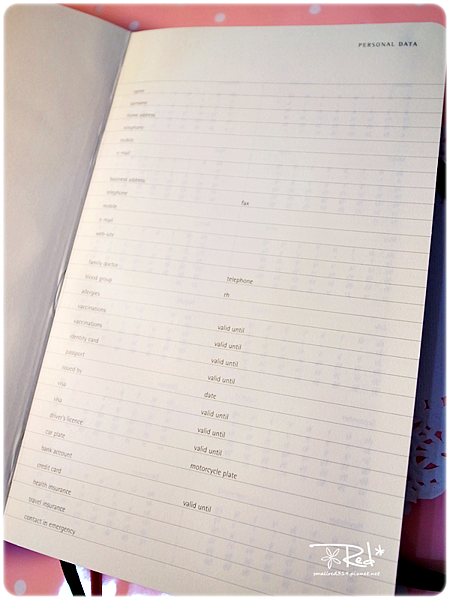 PERSONAL DATA
name
surname
home address
telephone
mobile
e-mail
business address
telephone fax
mobile
e-mail
web site
family doctor telephone
blood group rh
allergies
vaccinations valid until
vaccinations valid until
identity card valid until
passport valid until
issued by date
visa valid until
visa valid until
driver's licence valid until
car plate motorcycle plate
bank account
credit card valid until
health insurance
travel insurance
contact in emergency
Red*
smallred324.pixnet.net